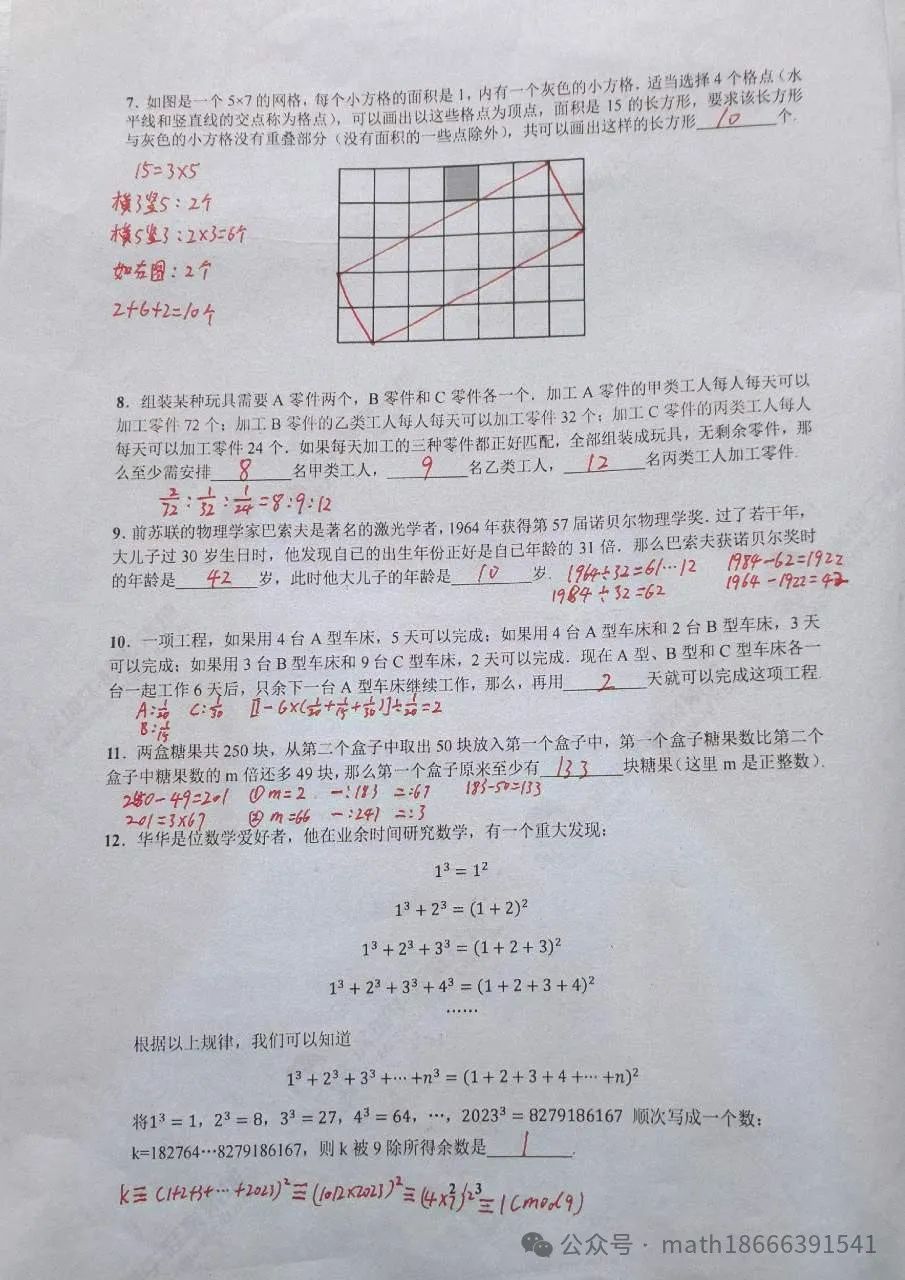 7．如图是一个 5×7 的网格，每个小方格的面积是 1，内有一个灰色的小方格．适当选择 4 个格点（水
平线和竖直线的交点称为格点），可以画出以这些格点为顶点，面积是 15 的长方形，要求该长方形
与灰色的小方格没有重叠部分（没有面积的一些点除外），共可以画出这样的长方形 10 个．
15=3×5
横3竖5：2个
横5竖3：2×3=6个
如右图：2个
2+6+2=10个
8．组装某种玩具需要 A 零件两个，B 零件和 C 零件各一个．加工 A 零件的甲类工人每人每天可以
加工零件 72 个；加工 B 零件的乙类工人每人每天可以加工零件 32 个；加工 C 零件的丙类工人每人
每天可以加工零件 24 个．如果每天加工的三种零件都正好匹配，全部组装成玩具，无剩余零件，那
么至少需安排 8 名甲类工人， 9 名乙类工人， 12 名丙类工人加工零件．
2/72 : 1/32 : 1/24 = 8:9:12
9．前苏联的物理学家巴索夫是著名的激光学者，1964 年获得第 57 届诺贝尔物理学奖．过了若干年，
大儿子过 30 岁生日时，他发现自已的出生年份正好是自已年龄的 31 倍．那么巴索夫获诺贝尔奖时
的年龄是 42 岁，此时他大儿子的年龄是 10 岁．
1964÷32=61…12 1984-62=1922
1984÷32=62 1964-1922=42
10．一项工程，如果用 4 台 A 型车床，5 天可以完成；如果用 4 台 A 型车床和 2 台 B 型车床，3 天
可以完成；如果用 3 台 B 型车床和 9 台 C 型车床，2 天可以完成．现在 A 型、B 型和 C 型车床各一
台一起工作 6 天后，只余下一台 A 型车床继续工作，那么，再用 2 天就可以完成这项工程．
A:1/20 C:1/30 [1-6×(1/20+1/15+1/30)]÷1/20=2
B:1/15
11．两盒糖果共 250 块，从第二个盒子中取出 50 块放入第一个盒子中，第一个盒子糖果数比第二个
盒子中糖果数的 m 倍还多 49 块，那么第一个盒子原来至少有 133 块糖果（这里 m 是正整数）．
250-49=201 ① m=2 一:183 二:67 183-50=133
201=3×67 ② m=66 一:247 二:3
12．华华是位数学爱好者，他在业余时间研究数学，有一个重大发现：
1³ = 1²
1³ + 2³ = (1 + 2)²
1³ + 2³ + 3³ = (1 + 2 + 3)²
1³ + 2³ + 3³ + 4³ = (1 + 2 + 3 + 4)²
……
根据以上规律，我们可以知道
1³ + 2³ + 3³ + ⋯ + n³ = (1 + 2 + 3 + 4 + ⋯ + n)²
将1³ = 1，2³ = 8，3³ = 27，4³ = 64，⋯，2023³ = 8279186167 顺次写成一个数：
k=182764⋯8279186167，则 k 被 9 除所得余数是 1 ．
k≡(1+2+3+⋯+2023)²≡(1012×2023)²≡(4×7)²≡1(mod9)
公众号 · math18666391541